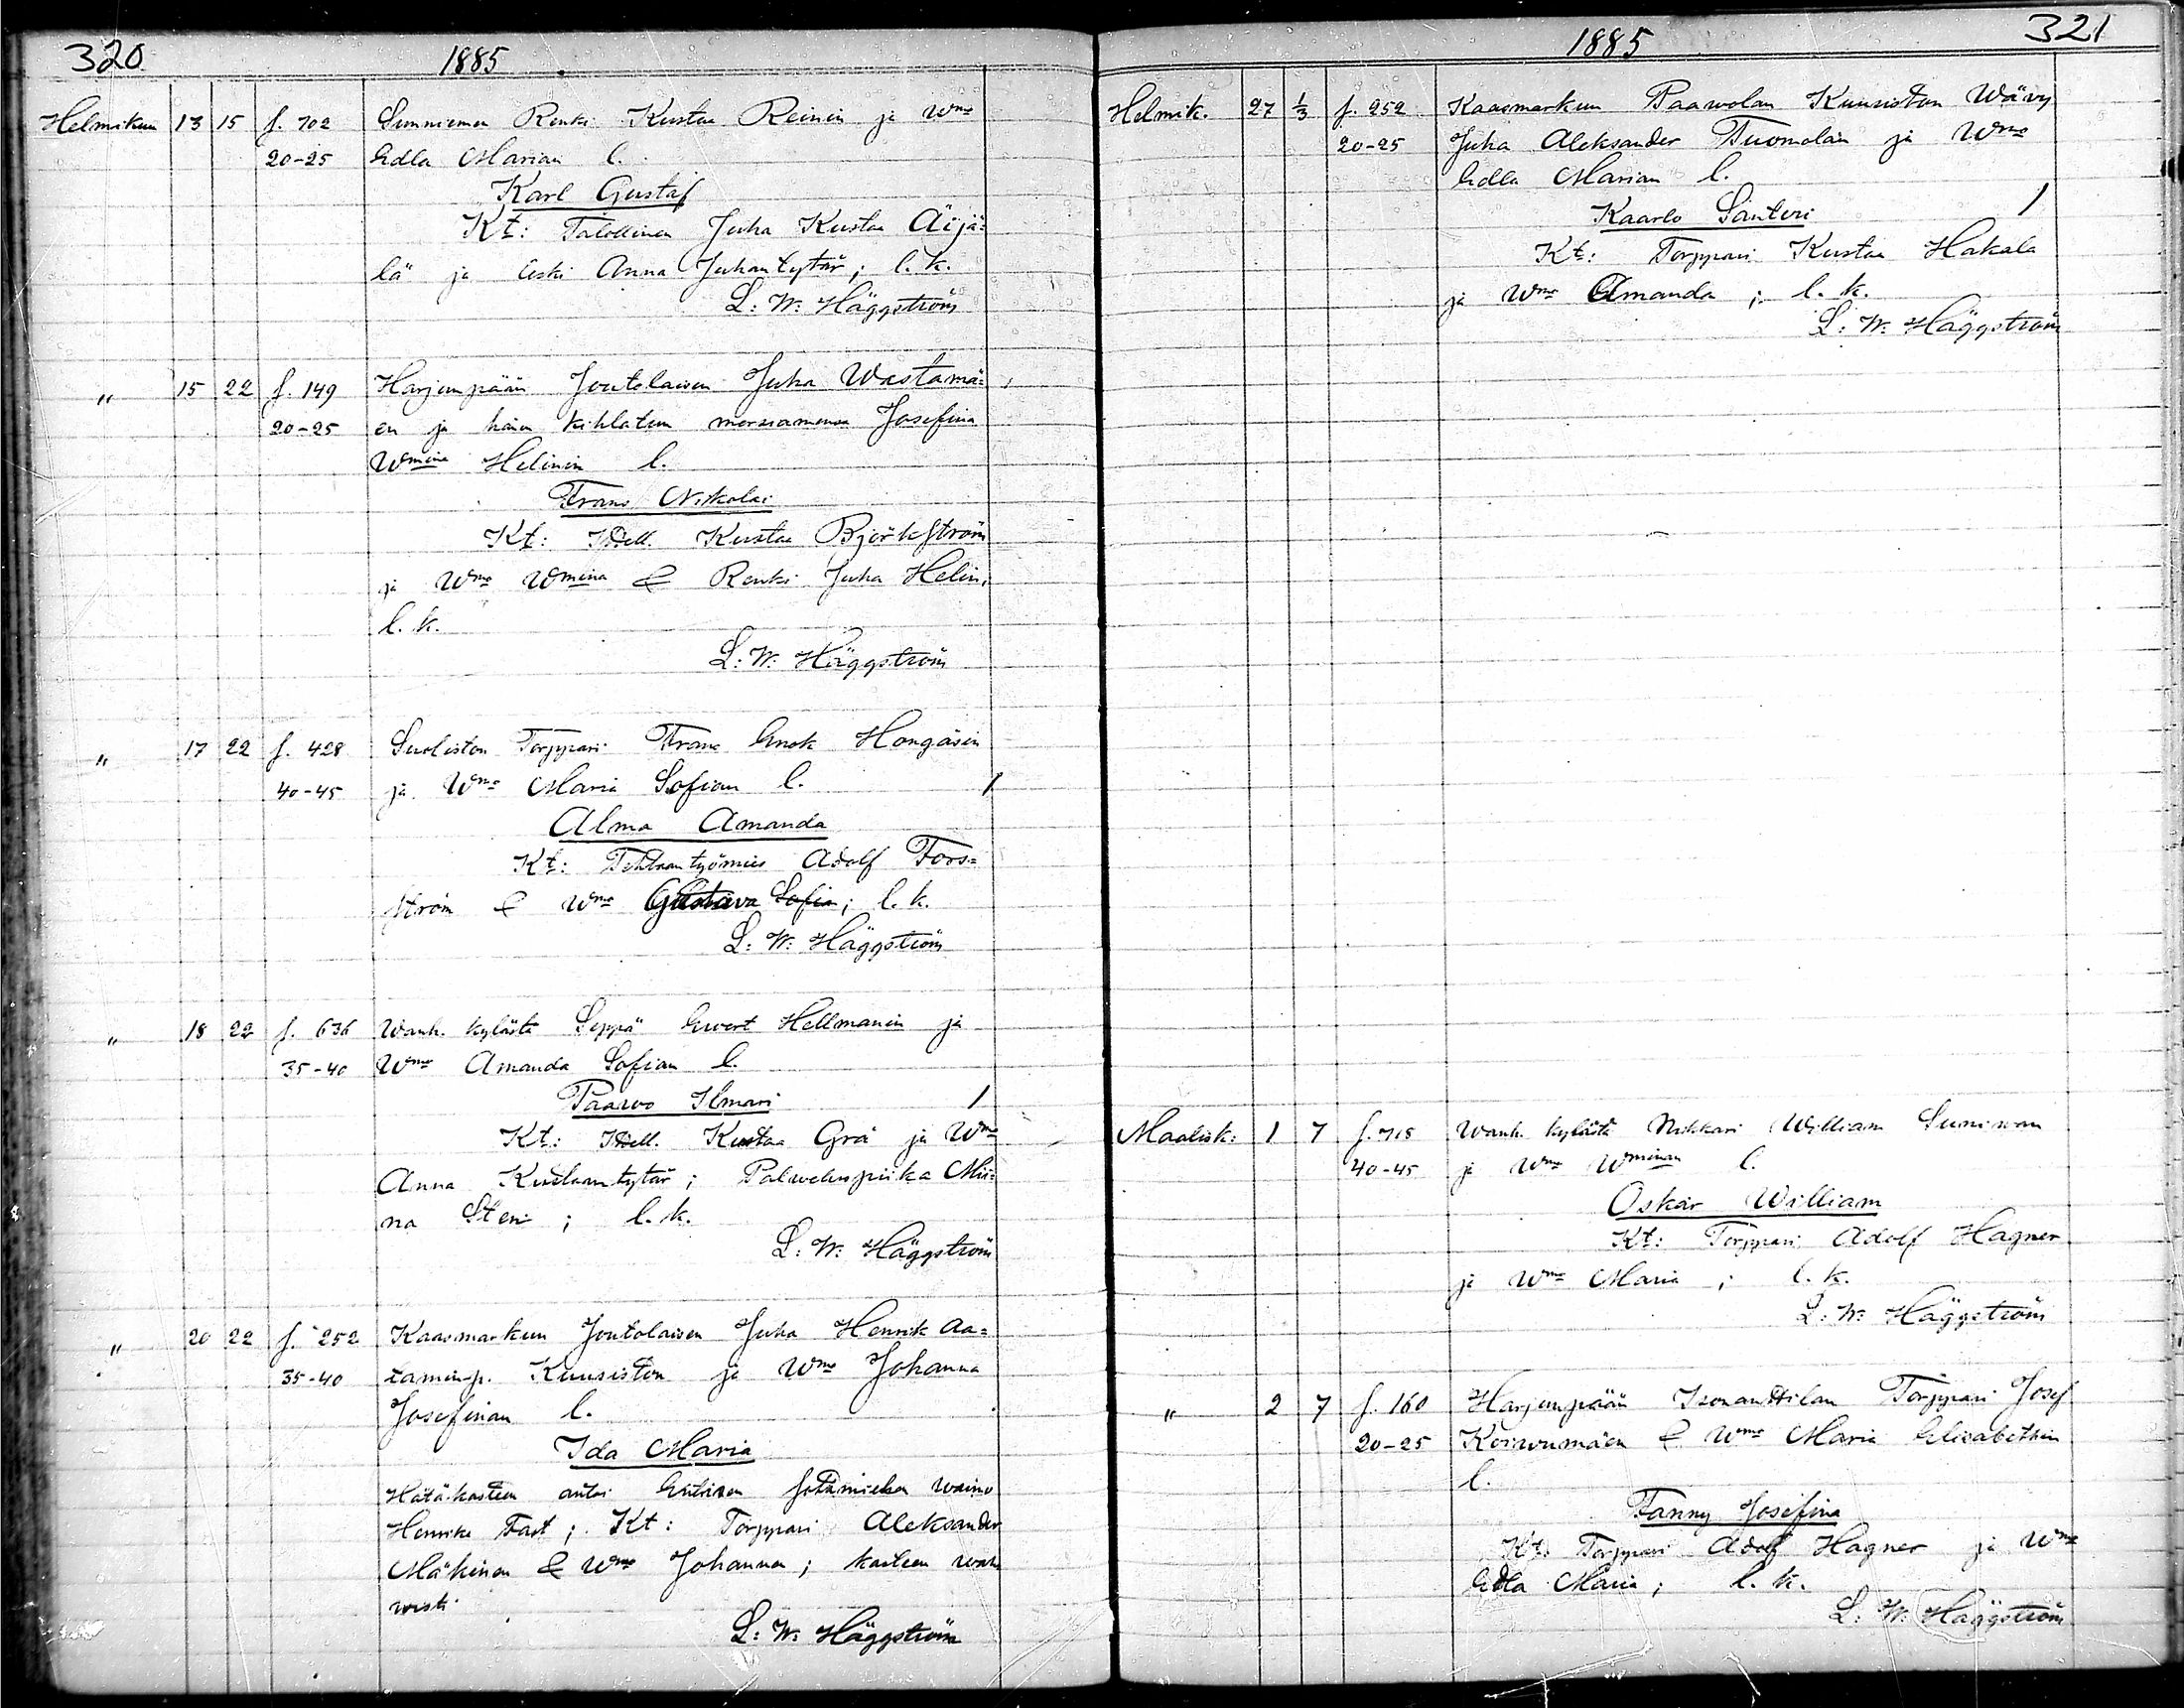 320 1885
Helmikuu 13 15 f. 702 Sunniemen Renki Kustaa Reinin ja Wmo
20-25 Edla Marian l.
Karl Gustaf
Kt: Talollinen Juha Kustaa Äijä=
lä ja leski Anna Juhantytär; l. k.
L: W: Häggström
" 15 22 f. 149 Harjunpään Joutolaisen Juha Wastamä=
20-25 en ja hänen kihlatun morsiamensa Josefina
Wmina Helinin l.
Frans Nikolai
Kt: Itsell. Kustaa Björkström
ja Wmo Wmina & Renki Juha Helin,
l. k.
L: W: Häggström
" 17 22 f. 428 Suoliston Torppari Frans Enok Hongasin
40-45 ja Wmo Maria Sofian l. 1
Alma Amanda
Kt: Tehtaantyömies Adolf Fors=
ström & Wmo Gustava Sofia; l. k.
L: W: Häggström
" 18 22 f. 636 Wanh. kylästä Seppä Ewert Hellmanin ja
35-40 Wmo Amanda Sofian l.
Paavo Ilmari 1
Kt: Itsell. Kustaa Grå ja Wmo
Anna Kustaantytär; Palweluspiika Mii=
na Sten; l. k.
L: W: Häggström
" 20 22 f. 252 Kaasmarkun Joutolaisen Juha Henrik Aa=
35-40 taminp. Kuusiston ja Wmo Johanna
Josefinan l.
Ida Maria
Hätäkasteen antoi Entisen sotamiehen waimo
Henrika Fast; Kt: Torppari Aleksander
Mäkinen & Wmo Johanna; kasteen wah
wisti
L: W: Häggström
1885 321
Helmik. 27 1/3 f. 252 Kaasmarkun Paawolan Kuusiston Wävy
20-25 Juha Aleksander Tuomolan ja Wmo
Edla Marian l.
Kaarlo Santeri 1
Kt: Torppari Kustaa Hakala
ja Wmo Amanda; l. k.
L: W: Häggström
Maalisk: 1 7 f. 718 Wanh. kylästä Nikkari William Sunisen
40-45 ja Wmo Wminan l.
Oskar William
Kt: Torppari Adolf Hagner
ja Wmo Maria; l. k.
L: W: Häggström
" 2 7 f. 160 Harjunpään Isonanttilan Torppari Josef
20-25 Koiwumäen & Wmo Maria Elisabethin
l.
Fanny Josefina
Kt: Torppari Adolf Hagner ja Wmo
Edla Maria; l. k.
L: W: Häggström